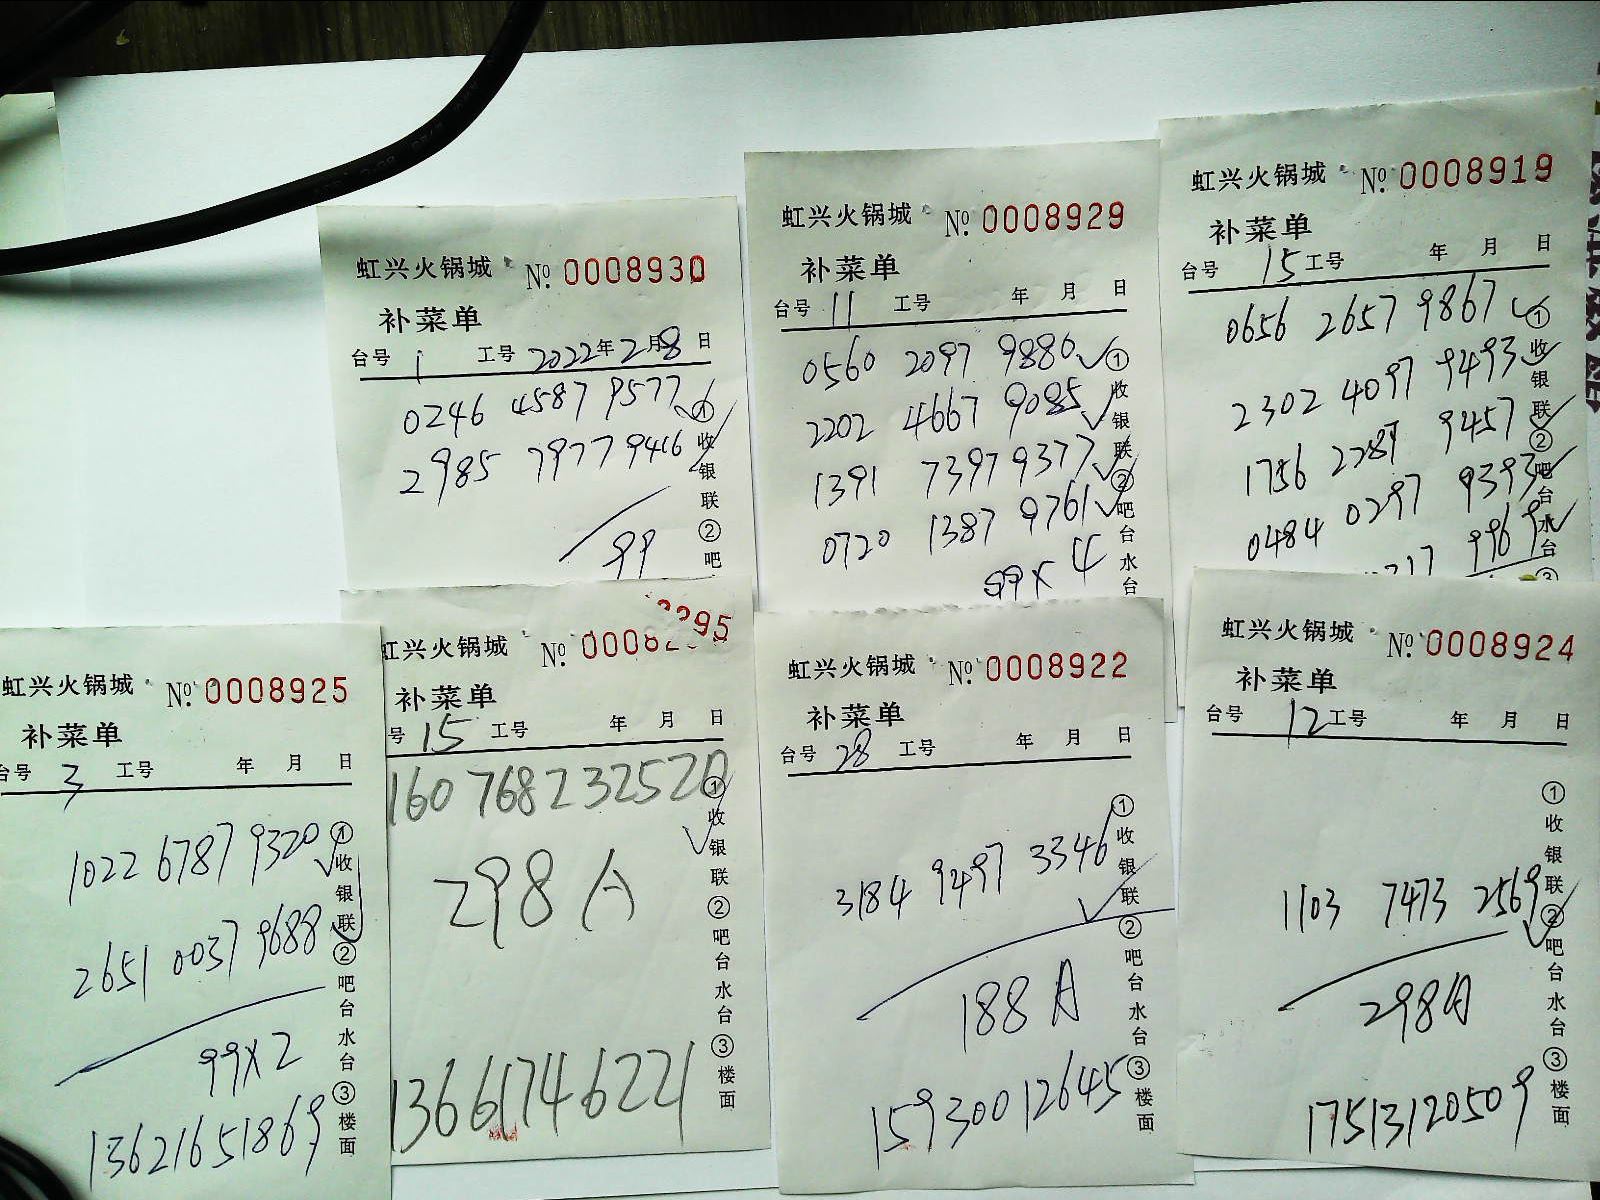 虹兴火锅城 No. 0008930
补菜单
台号 1 工号 2022年2月8日
0246 4587 9577
2985 7977 9416
99
①收银联②吧
虹兴火锅城 No. 0008929
补菜单
台号 11 工号 年 月 日
0560 2097 9880
2202 4667 9085
1391 7397 9377
0720 1387 9761
99×4
①收银联②吧台水台
虹兴火锅城 No. 0008919
补菜单
台号 15 工号 年 月 日
0656 2657 9867
2302 4097 9493
1756 2287 9457
0484 0297 9393
9969
①收银联②吧台水台③
虹兴火锅城 No. 0008925
补菜单
台号 3 工号 年 月 日
1022 6787 9320
2651 0037 9688
99×2
13621651869
①收银联②吧台水台③楼面
虹兴火锅城 No.
补菜单
号 15 工号 年 月 日
160 768232520
298A
13661746221
①收银联②吧台水台③楼面
虹兴火锅城 No. 0008922
补菜单
台号 28 工号 年 月 日
3184 9497 3346
188A
15930012645
①收银联②吧台水台③楼面
虹兴火锅城 No. 0008924
补菜单
台号 12 工号 年 月 日
1103 7473 2569
298A
17513120509
①收银联②吧台水台③楼面